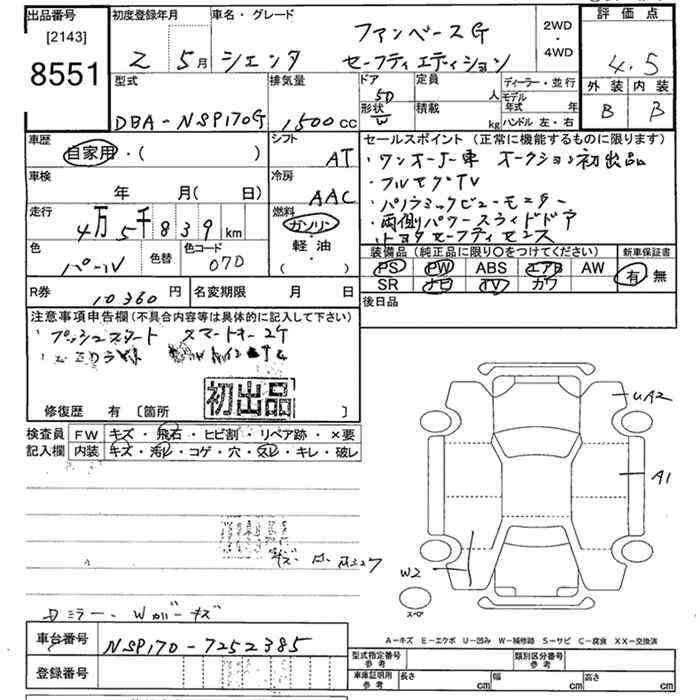 出品番号
[2143]
8551
初度登録年月
2 5月
車名・グレード
シエンタ
ファンベースG
セーフティエディション
2WD
・
4WD
評価点
4.5
外装 内装
B B
型式
DBA-NSP170G
排気量
1,500cc
ドア
5D
形状
定員
人
積載
kg
ディーラー・並行
モデル年式 年
ハンドル 左・右
車歴
自家用・( )
シフト
AT
車検
年 月( 日)
冷房
AAC
走行
4万5千839km
燃料
ガソリン
・
軽油
・
( )
色
パール
色替
色コード
070
セールスポイント(正常に機能するものに限ります)
・ワンオーナー車 オークション初出品
・フルセグTV
・パノラミックビューモニター
・両側パワースライドドア
・トヨタセーフティセンス
装備品(純正品に限り○をつけてください)
PS PW ABS エアB AW
SR ナビ TV カワ
新車保証書
有・無
R券
10360円
名変期限 月 日
後日品
注意事項申告欄(不具合内容等は具体的に記入して下さい)
・プッシュスタート スマートキー2ケ
初出品
修復歴 有[箇所 ]
検査員
記入欄
FW キズ・飛石・ヒビ割・リペア跡・×要
内装 キズ・汚レ・コゲ・穴・スレ・キレ・破レ
UA2
A1
W2
スペア
ミラー、Wカバーキズ
車台番号
NSP170-7252385
登録番号
A-キズ E-エクボ U-凹み W-補修跡 S-サビ C-腐食 XX-交換済
型式指定番号
参考
類別区分番号
参考
車庫証明用
参考
長さ cm 幅 cm 高さ cm